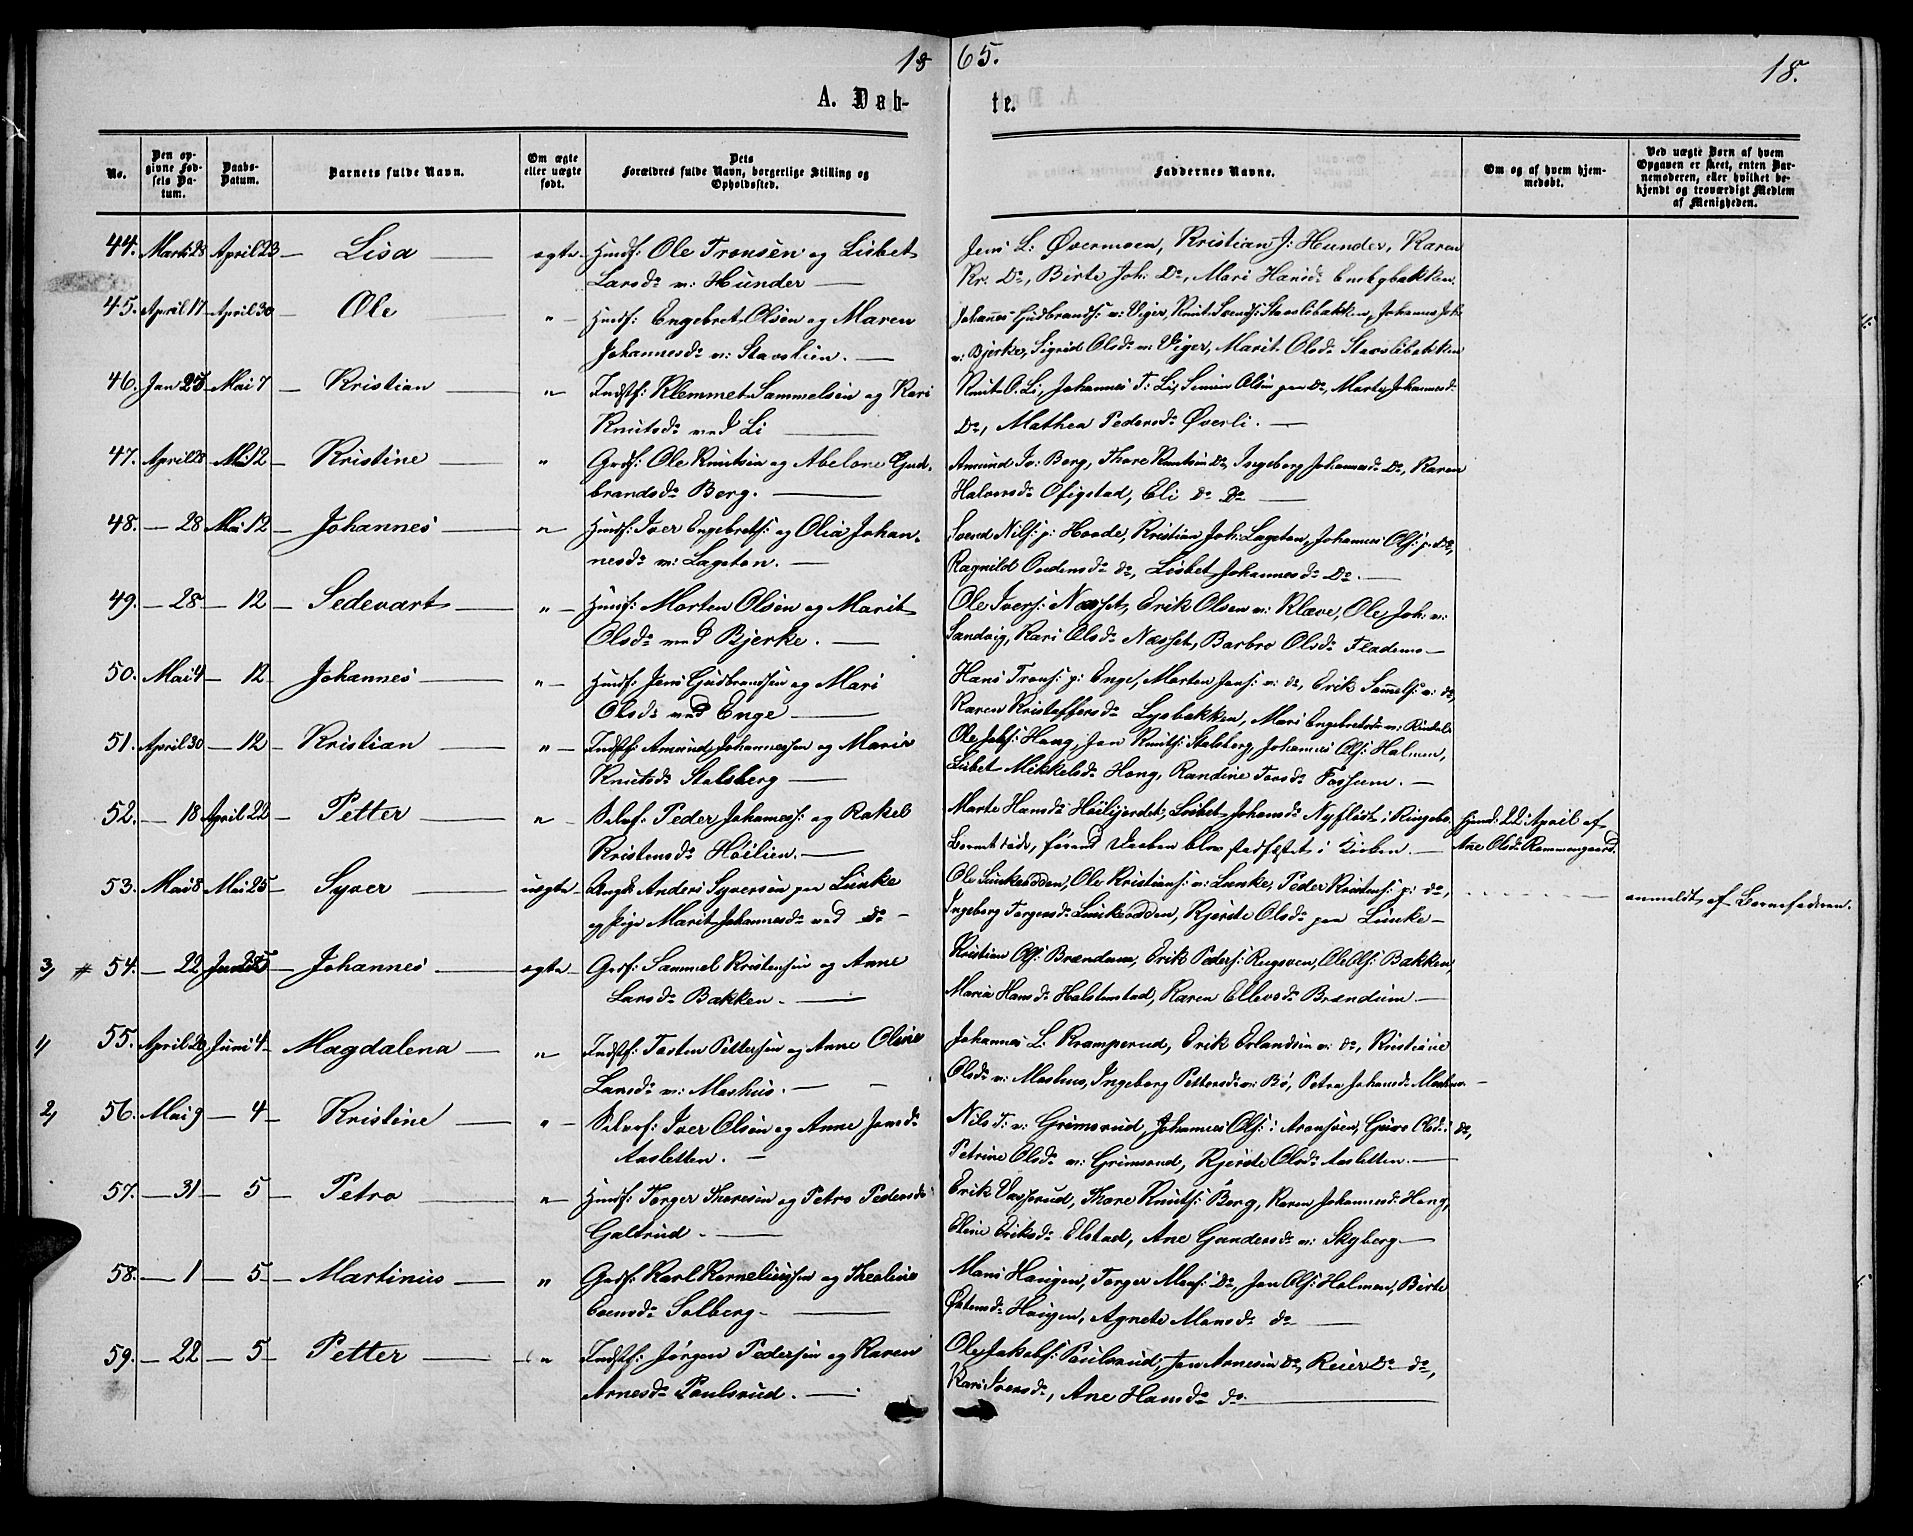 1865.
18.
A. Døb-
te.
No.
Den op-
givne Fød-
sels Da-
tum.
Daabs-
Datum.
Barnets fulde Navn.
Om ægte
eller uægte
født.
Dets
Forældres fulde Navn, borgerlige Stilling og
Opholdssted.
Faddernes Navne.
Om og af hvem hjem-
medøbt.
Ved uægte Børn af hvem
Opgaven er skeet, enten Bar-
nemoderen, eller hvilket be-
kjendt og troværdigt Medlem
af Menigheden.
44. Marts 28 April 23 Lisa ægte Husf: Ole Tronsen og Lisbet
Larsdr v: Hunder
Jens L: Øvermoen, Kristian J: Hunder, Karen
Kr. Do, Birte Joh: Do, Mari Hansdr
45. April 17 April 30 Ole " Husf: Engebret Olsen og Maren
Johannesdr v: Stavslien.
Johannes Gudbrandss v: Viger, Knut Svends: Stavslibakken, Johannes Joh:
v: Bjerke, Sigrid Olsdr v: Viger, Marit Olsdr Stavslibakken
46. Jan 25 Mai 7 Kristian " Indstf: Klemmet Sammelsen og Kari
Knutsdr ved Li
Knut O. Li, Johannes T: Li, Simen Olsen paa Do, Marte Johannesdr
Do, Mathea Pedersdr Øverli.
47. April 28 Mai 12 Kristine " Grdf: Ole Knutsen og Abelone Gud-
brandsdr Berg.
Amund Iv: Berg, Thore Knutsen Do, Ingeborg Johannesdr Do, Karen
Halvorsdr Ofigstad, Eli do Do
48. 28 Mai 12 Johannes " Husf: Iver Engebrets: og Olia Johan-
nesdr v: Lageton.
Svend Nils: p: Hovde, Kristian Joh: Lageton, Johannes Ols: p: do,
Ragnild Ovdensdr do, Lisbet Johannesdr Do.
49. 28 12 Sedevart " Husf: Morten Olsen og Marit
Olsdr ved Bjerke.
Ole Ivers: Næsset, Erik Olsen v: Klæve, Ole Joh: v:
Sandvig, Kari Olsdr Næsset, Barbro Olsdr Flademo
50. Mai 4 12 Johannes " Husf: Jens Gudbrandsen og Mari
Olsdr ved Enge
Hans Trons: p: Enge, Morten Jens: v: do, Erik Samels: v: do,
Karen Kristoffersdr Lysbakken, Mari Engebretsdr v: Rindal
51. April 30 12 Kristian " Indstf: Amund Johannessen og Marie
Knutsdr Stalsberg
Ole Jakobs: Haug, Jan Knuts: Stalsberg, Johannes Ols: Holmen,
Lisbet Mikkelsdr Haug, Randine Torsdr Fossum.
52. 18 April 22 Petter " Selvf: Peder Johanness: og Rakel
Kristensdr Høilien.
Marte Hansdr Høiligjerdet, Lisbet Johansdr Nyflødt i Ringebo.
Barnet døde, førend Daaben blev stadfæstet i Kirken.
hjemd: 22 April af
Ane Olsdr Rommengaard.
53. Mai 8 Mai 25 Syver uægte Ungk: Anders Syversen paa Lunke
og Pige Marit Johannesdr ved do
Ole Lunkeodden, Ole Kristians: v: Lunke, Peder Kristens: p: do,
Ingeborg Torgersdr Lunkeodden, Kjerste Olsdr paa Lunke
anmeldt af Barnefaderen.
3) # 54. 22 Juni 25 Johannes ægte Grdf: Sammel Kristensen og Anne
Larsdr Bakken.
Kristian Ols: Brændum, Erik Peders: Rugsveen, Ole Ols: Bakken,
Maria Hansdr Halstenstad, Karen Ellevsdr Brændum
1) 55. April 20 Juni 4 Magdalena " Indstf: Tosten Pettersen og Anne Oline
Larsdr v: Moshus.
Johannes L. Kramperud, Erik Erlandsen v: do, Kristiane
Olsdr v: Moshus, Ingeborg Pettersdr v: Bø, Petra Johansdr Moshus
2) 56. Mai 9 4 Kristine " Selvf: Iver Olsen og Anne Jensdr
Aasletten.
Nils T: v: Grimsrud, Johannes Ols: i Aronsveen, Guro Olsdr i do,
Petrine Olsdr v: Grimsrud, Kjerste Olsdr Aasletten.
57. 31 5 Petra " Husf: Torger Thoresen og Petra Pedersdr
Galtrud.
Erik Vasrud, Thore Knuts: Berg, Karen Johannesdr Haug,
Eline Eriksdr Elstad, Ane Gundersdr v: Skyberg
58. 1 5 Martinus " Grdf: Karl Korneliussen og Thealine
Evensdr Solberg.
Mons Haugen, Torger Mons: Do, Jan Ols: Holmen, Birte
Østensdr Haugen, Agnete Monsdr do
59. 22 5 Petter " Indstf: Jørgen Pedersen og Karen
Arnesdr Paulsrud.
Ole Jakobs: Paulsrud, Jan Arnesen Do, Reier Do do,
Kari Iversdr, Ane Hansdr do.